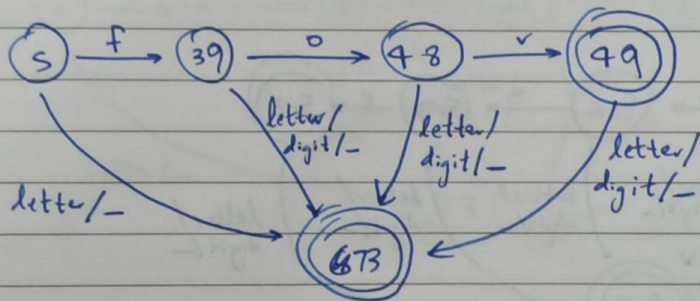 f o v
S 39 48 49
letter/ digit/_
letter/ digit/_
letter/ digit/_
letter/_
673